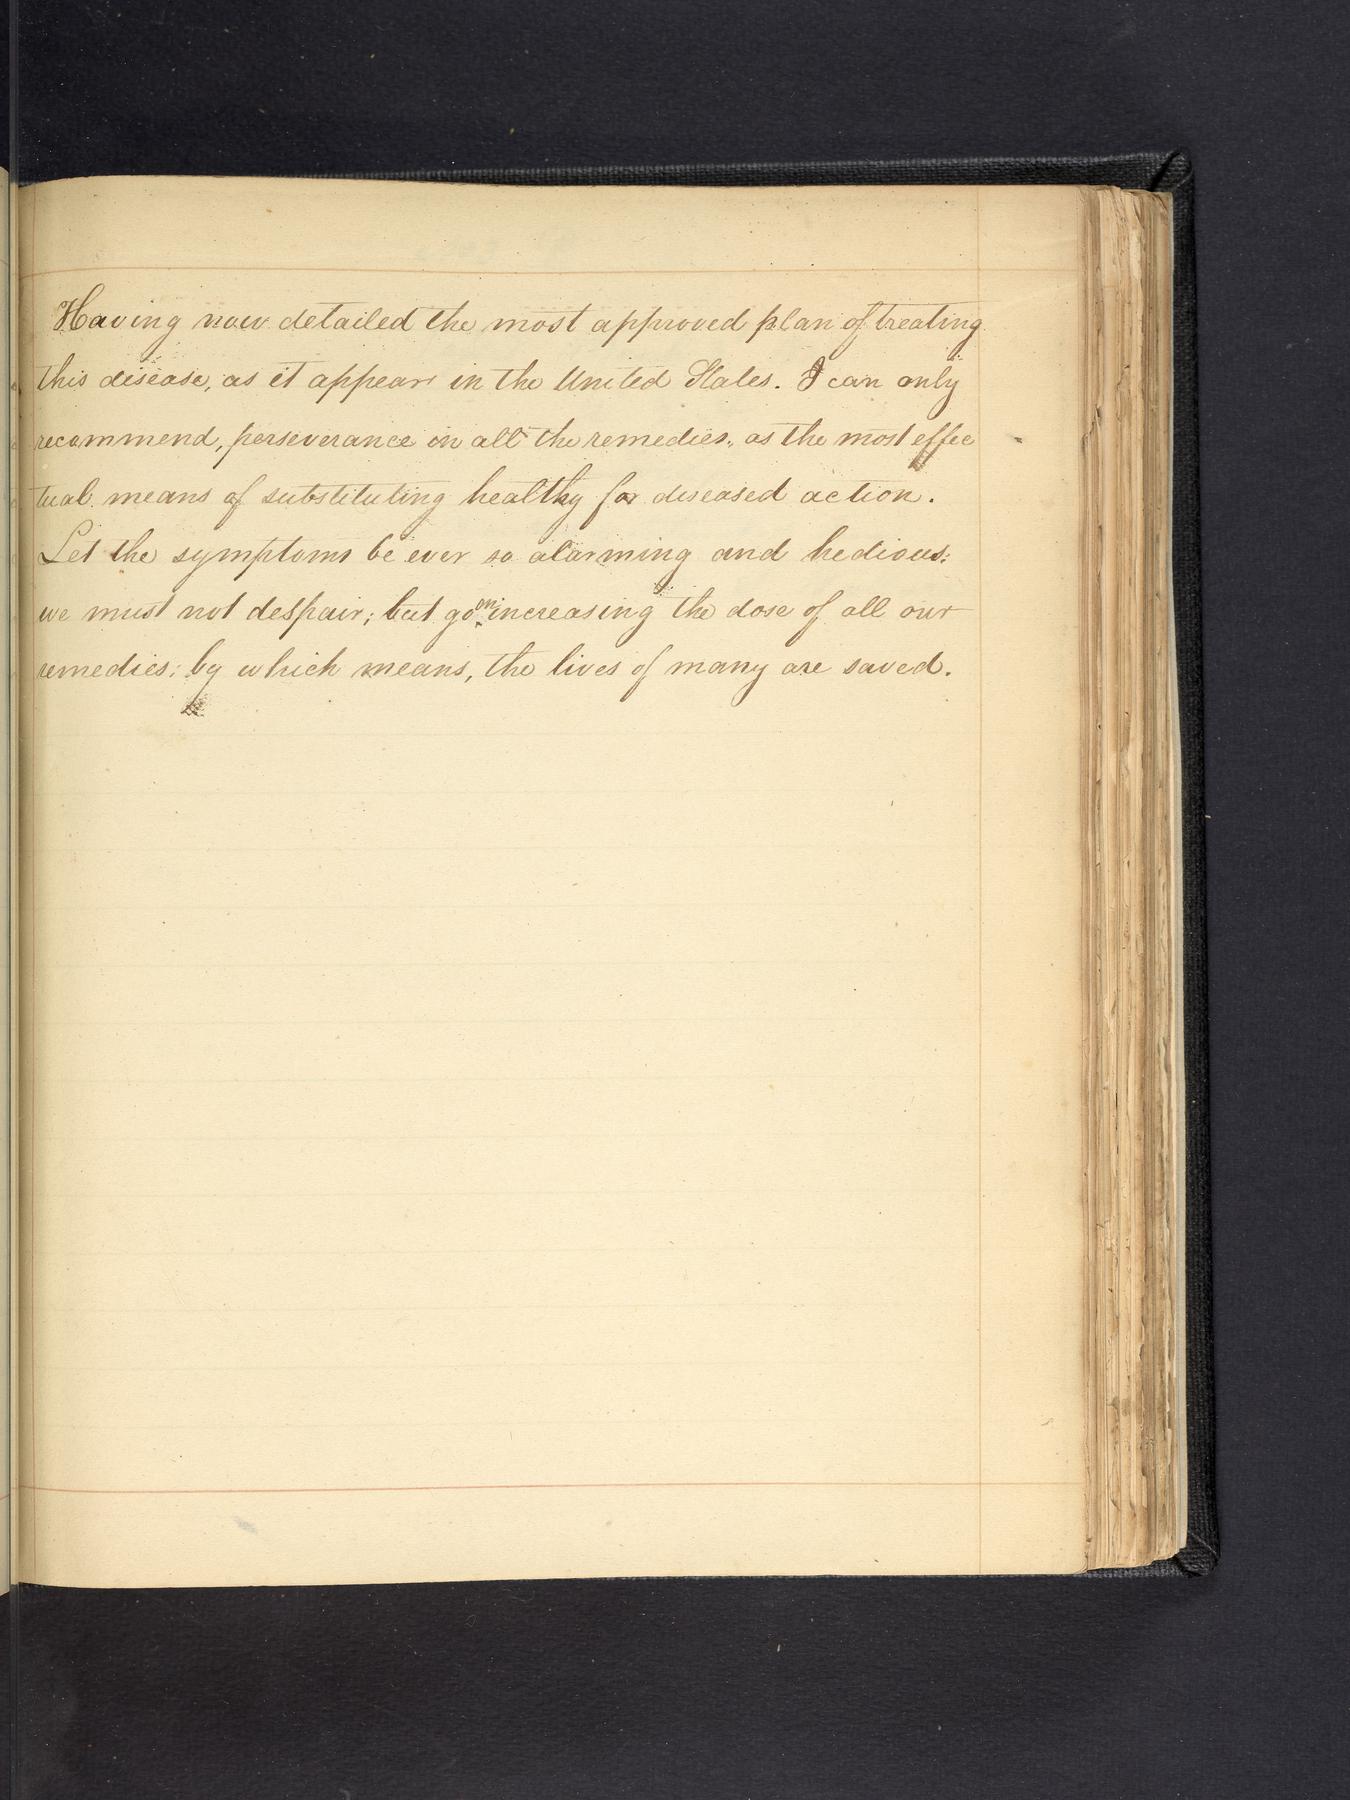 Having now detailed the most approved plan of treating
this disease, as it appears in the United States. I can only
recommend, perseverance in all the remedies, as the most effec
tual means of substituting healthy for diseased action.
Let the symptoms be ever so alarming and hedious:
we must not despair; but go on increasing the dose of all our
remedies: by which means, the lives of many are saved.